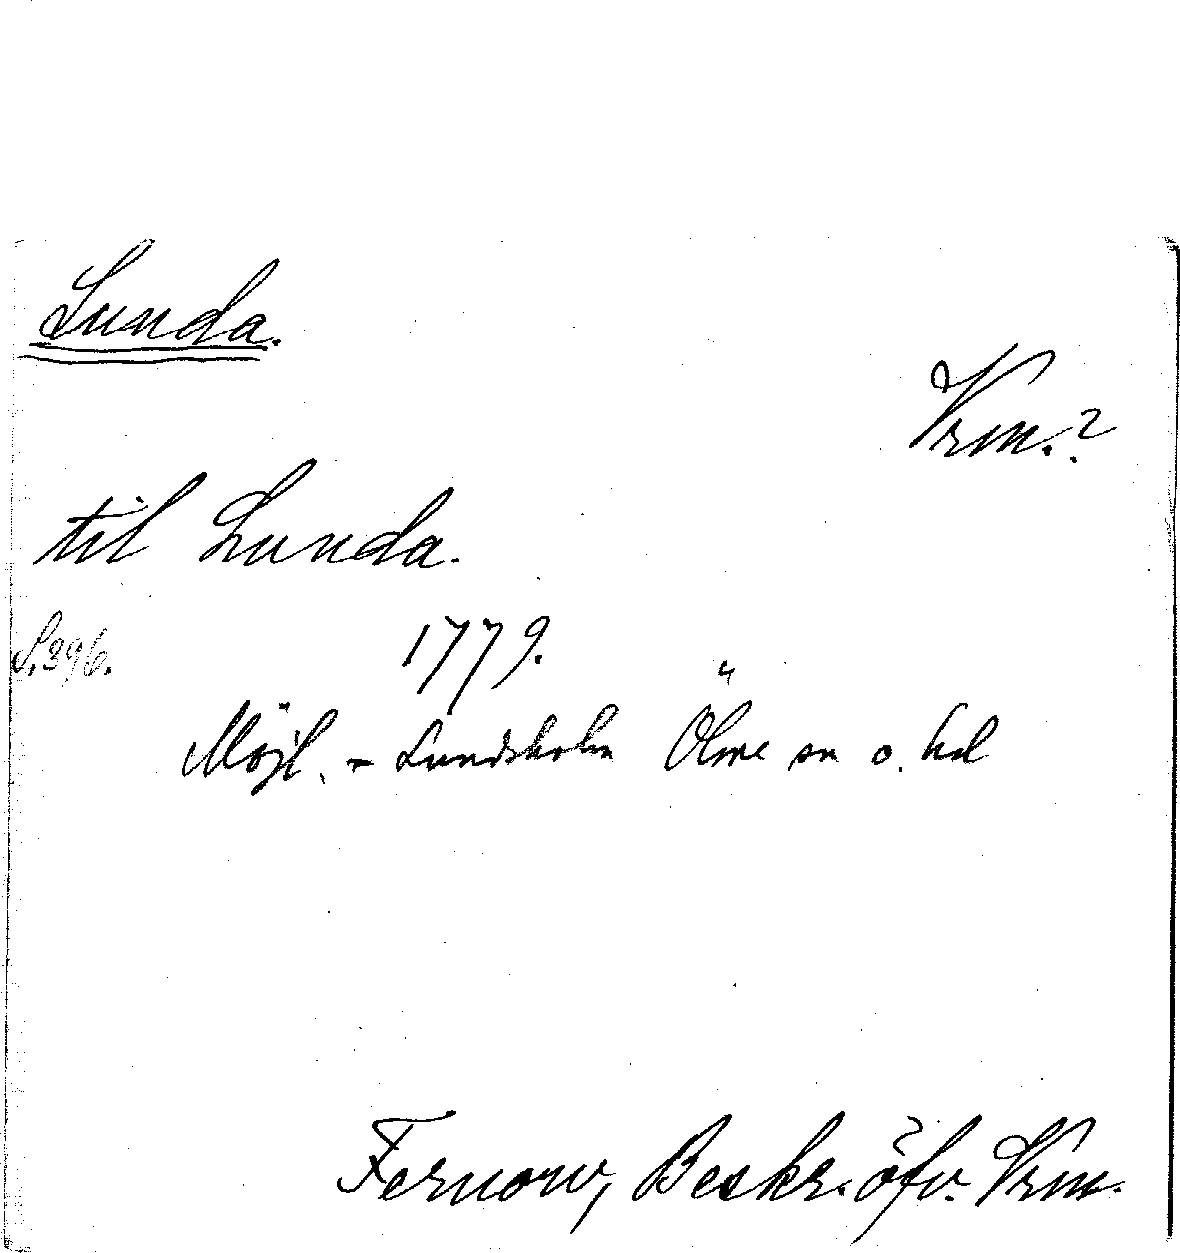 Lunda.
Vrm.?
til Lunda.
S. 396.
1779.
Möjl. = Lundsholm Ölme sn o. hd
Fernow, Beskr. öfv. Vrm.